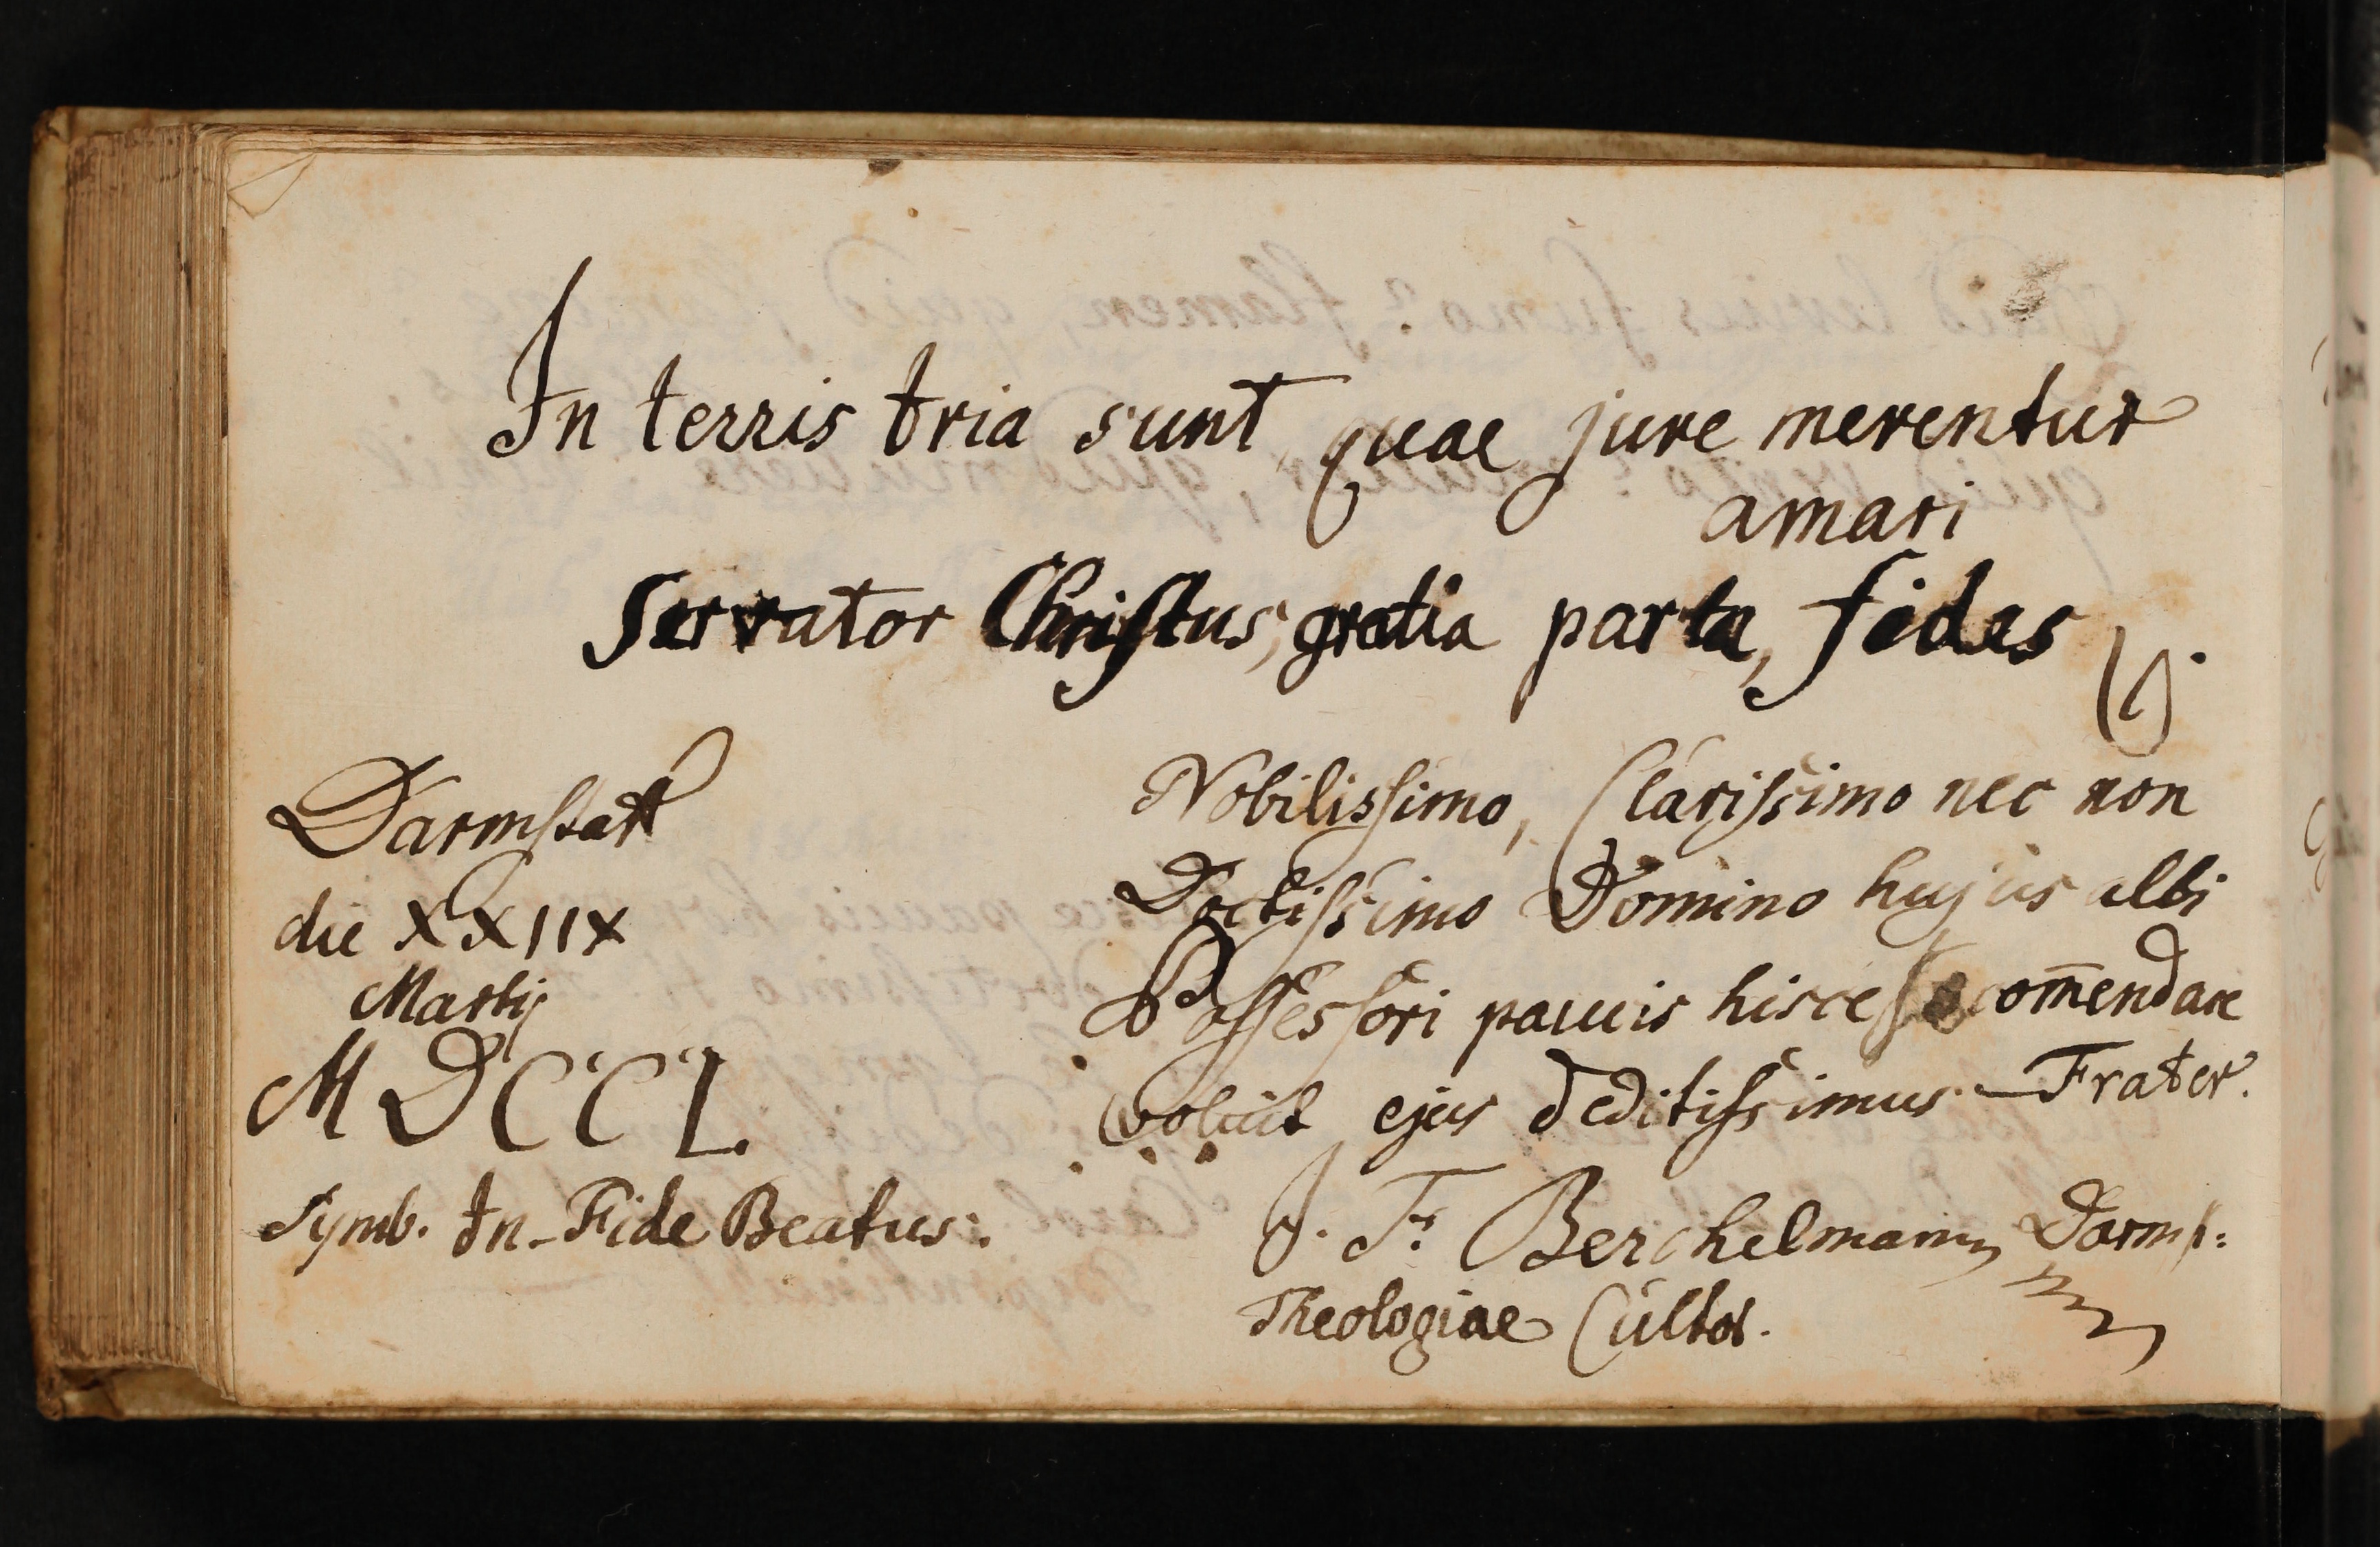 In terris tria sunt, quae jure merentur
amari
Servator Christus, gratia parta, fides
Darmstatt
die XXIIX
Martij
MDCCL.
Symb. In Fide Beatus.
Nobilissimo, Clarissimo nec non
Doctissimo Domino hujus albi
Possessori paucis hisce se com̄endare
voluit ejus deditissimus Frater.
J. F. Berchelmann Darmst:
Theologiae Cultor.